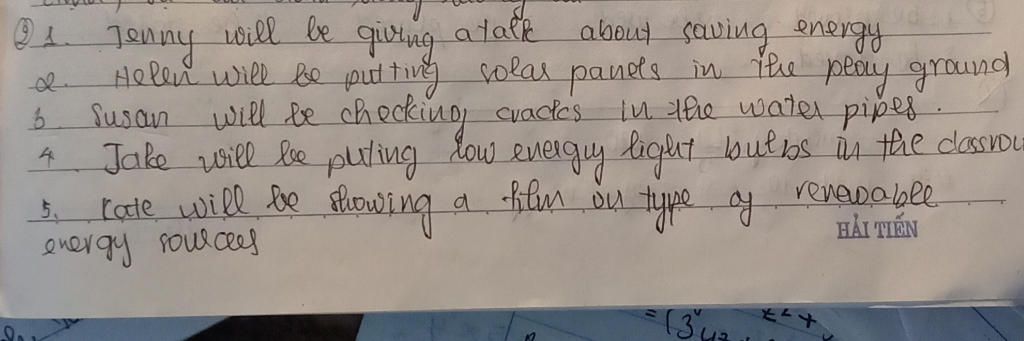 ③ 1. Jenny will be giving a talk about saving energy
2. Helen will be putting solar panels in the peay ground
3 Susan will be checking cracks in the water pipes.
4 Jake will be puting low energy light bulbs in the classrou
5. Kate will be showing a film on type of renewable
energy sources
HẢI TIẾN